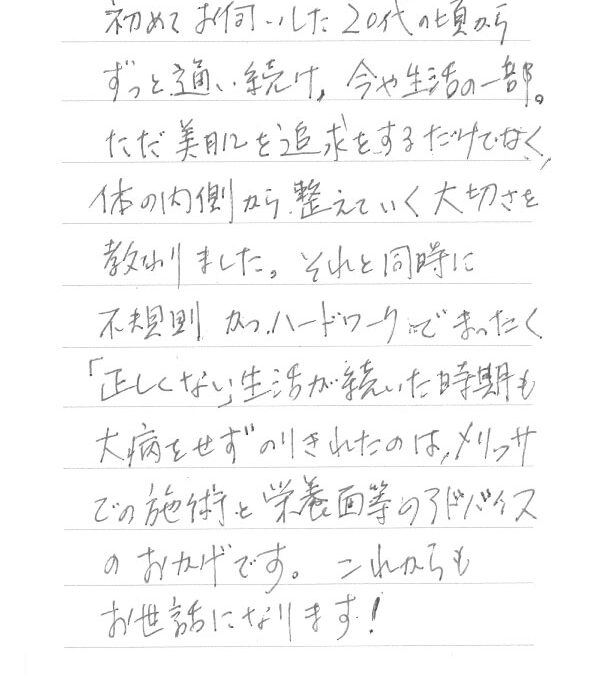 初めてお伺いした20代の頃から
ずっと通い続け、今や生活の一部。
ただ美肌を追求をするだけでなく、
体の内側から整えていく大切さを
教わりました。それと同時に
不規則かつハードワークでまったく
「正しくない」生活が続いた時期も
大病をせずのりきれたのは、メリッサ
での施術と栄養面等のアドバイス
のおかげです。これからも
お世話になります!